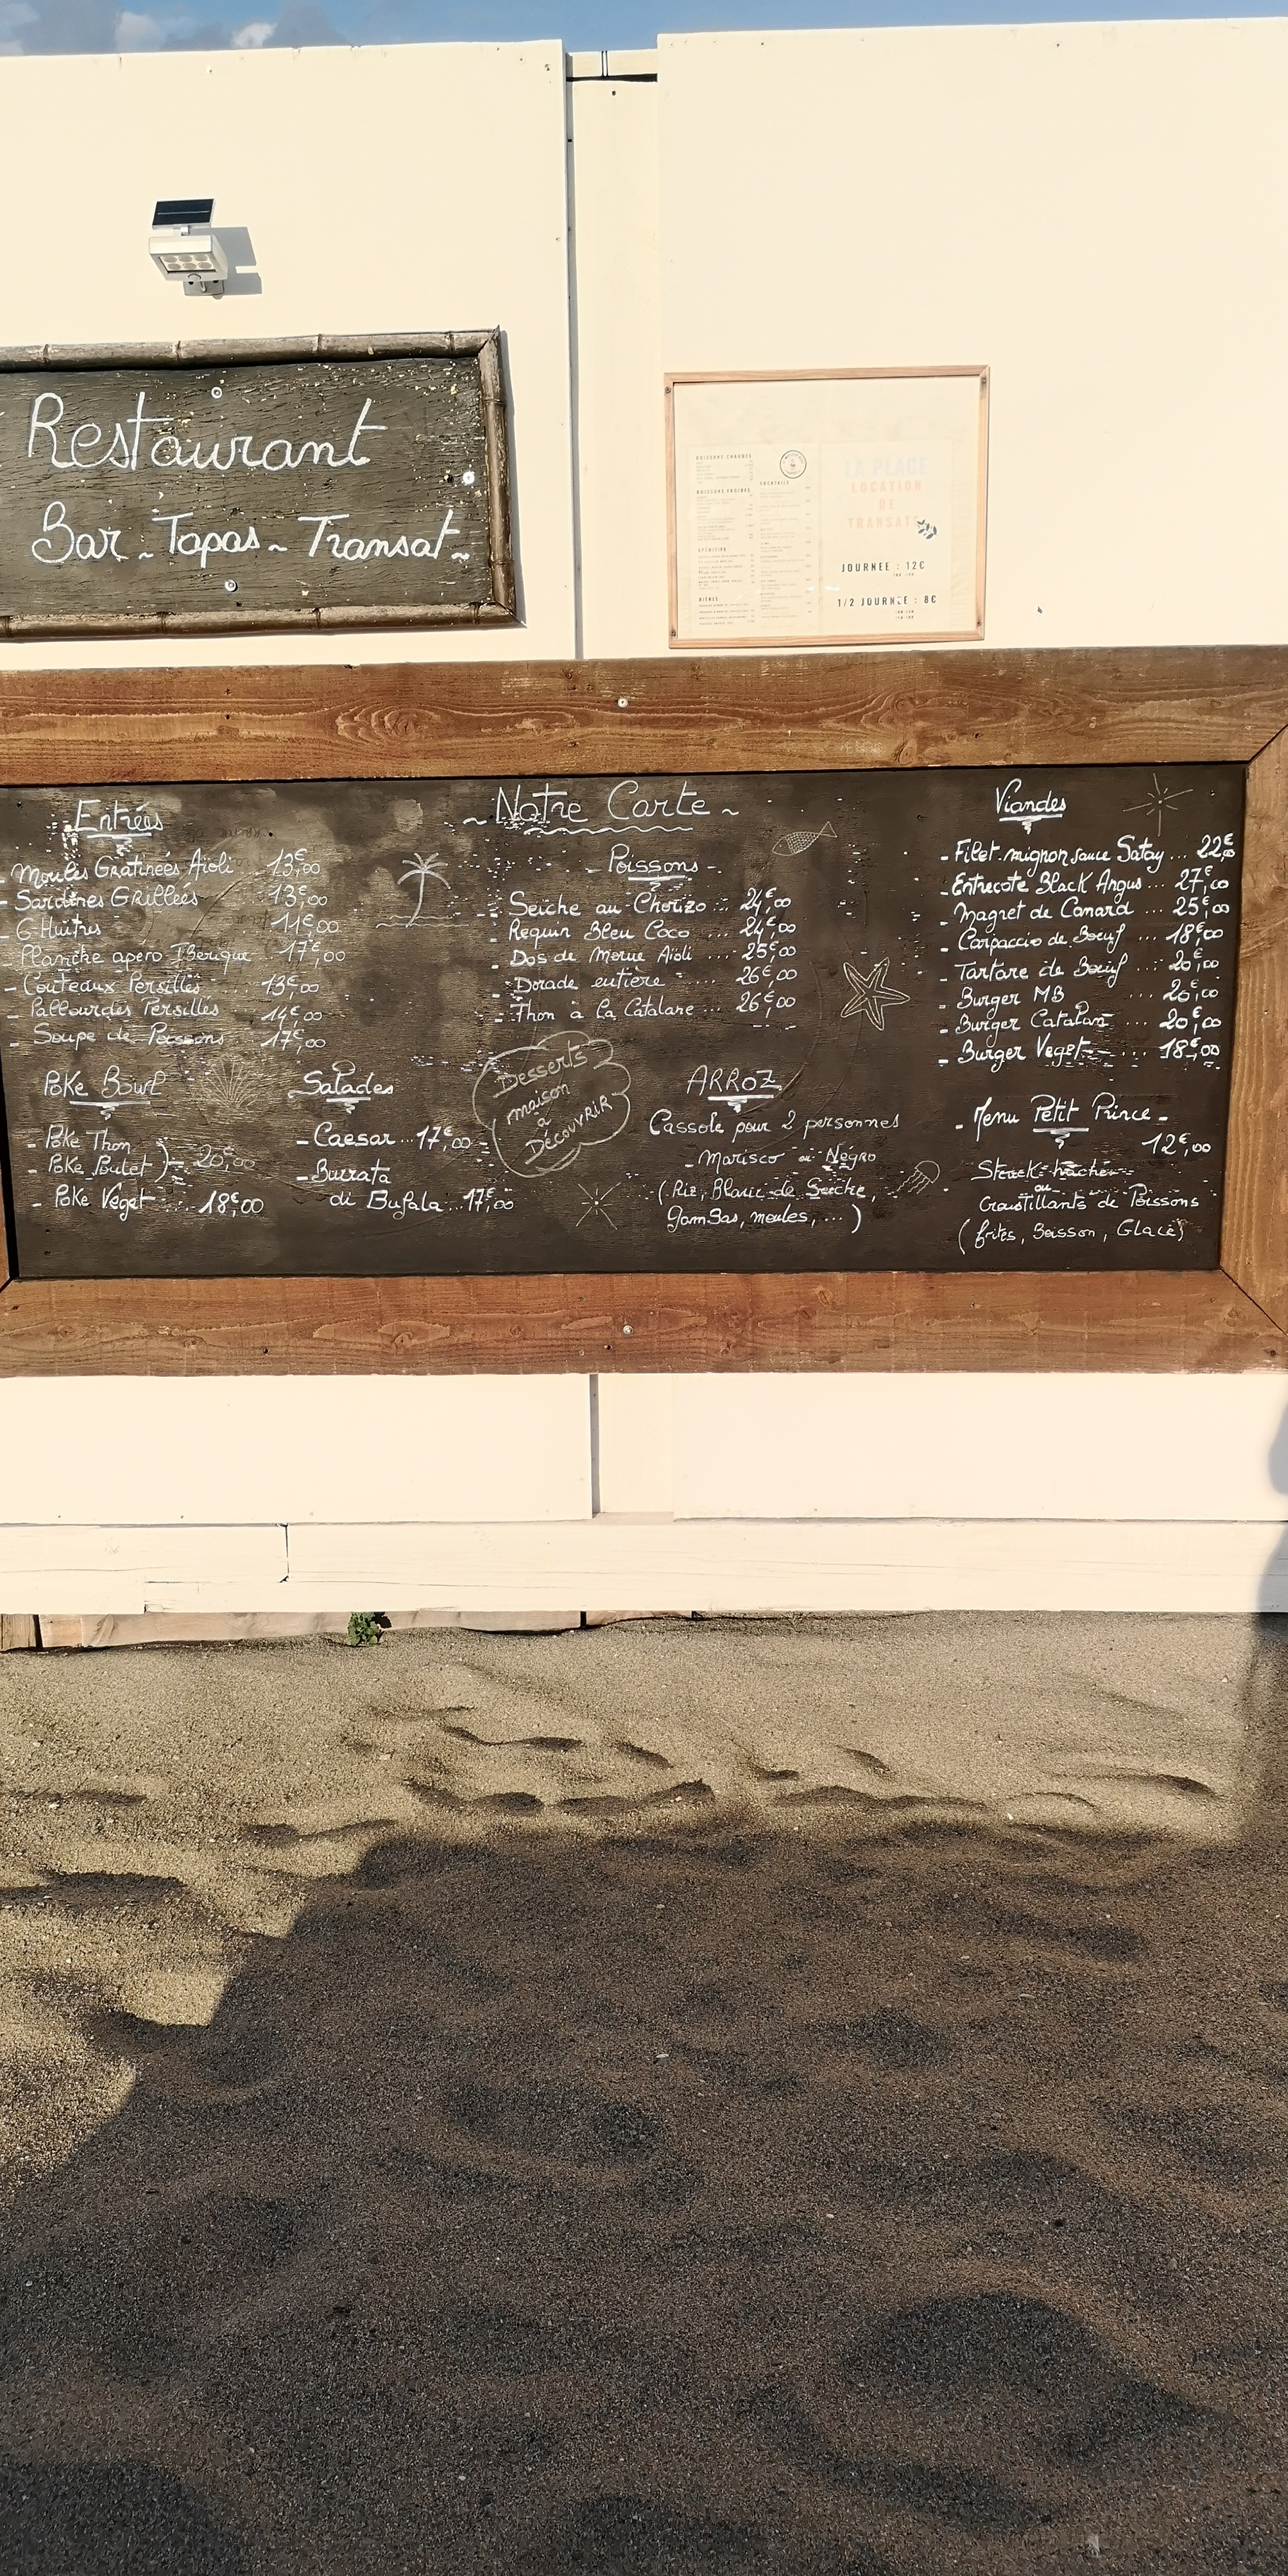 Restaurant
Bar ~ Tapas ~ Transat ~
BOISSONS CHAUDES
BOISSONS FROIDES
APÉRITIFS
BIÈRES
COCKTAILS
LA PLAGE
LOCATION
DE
TRANSATS
JOURNEE : 12€
1/2 JOURNÉE : 8€
~ Notre Carte ~
Entrées
- Moules Gratinées Aïoli 13€,00
- Sardines Grillées 13€,00
- 6 Huîtres 11€,00
- Planche apéro IBerique 17€,00
- Couteaux Persillés 13€,00
- Pallourdes Persillés 14€,00
- Soupe de Poissons 17€,00
Poke Bowl
- Poke Thon
- Poke Poulet ) - 20,00
- Poke Veget ... 18€,00
Salades
- Caesar ... 17€,00
- Burrata
di Bufala ... 17€,00
Poissons -
- Seiche au Chorizo ... 24€,00
- Requin Bleu Coco ... 24€,00
- Dos de Morue Aïoli ... 25€,00
- Dorade entière ... 26€,00
- Thon à La Catalane ... 26€,00
Desserts
maison
à
DÉCOUVRIR
ARROZ
Cassole pour 2 personnes
- Marisco ou Négro
(Riz, Blanc de Seiche,
gamBas, moules, ...)
Viandes
- Filet mignon sauce Satay ... 22€,00
- Entrecote Black Angus ... 27€,00
- Magret de Canard ... 25€,00
- Carpaccio de Boeuf ... 18€,00
- Tartare de Boeuf ... 20€,00
- Burger MB ... 20€,00
- Burger Catalan ... 20€,00
- Burger Veget ... 18€,00
- Menu Petit Prince -
12€,00
Steack haché
ou
Croustillants de Poissons
(frites, Boisson, Glace)